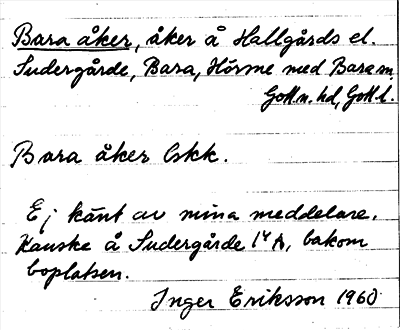 Bara åker, åker å Hallgårds el.
Sudergårde, Bara, Hörsne med Bara sn
Gotl. n. hd, Gotl.
Bara åker bskk.
Ej känt av mina meddelare.
Kanske å Sudergårde 1⁴A, bakom
boplatsen.
Inger Eriksson 1960